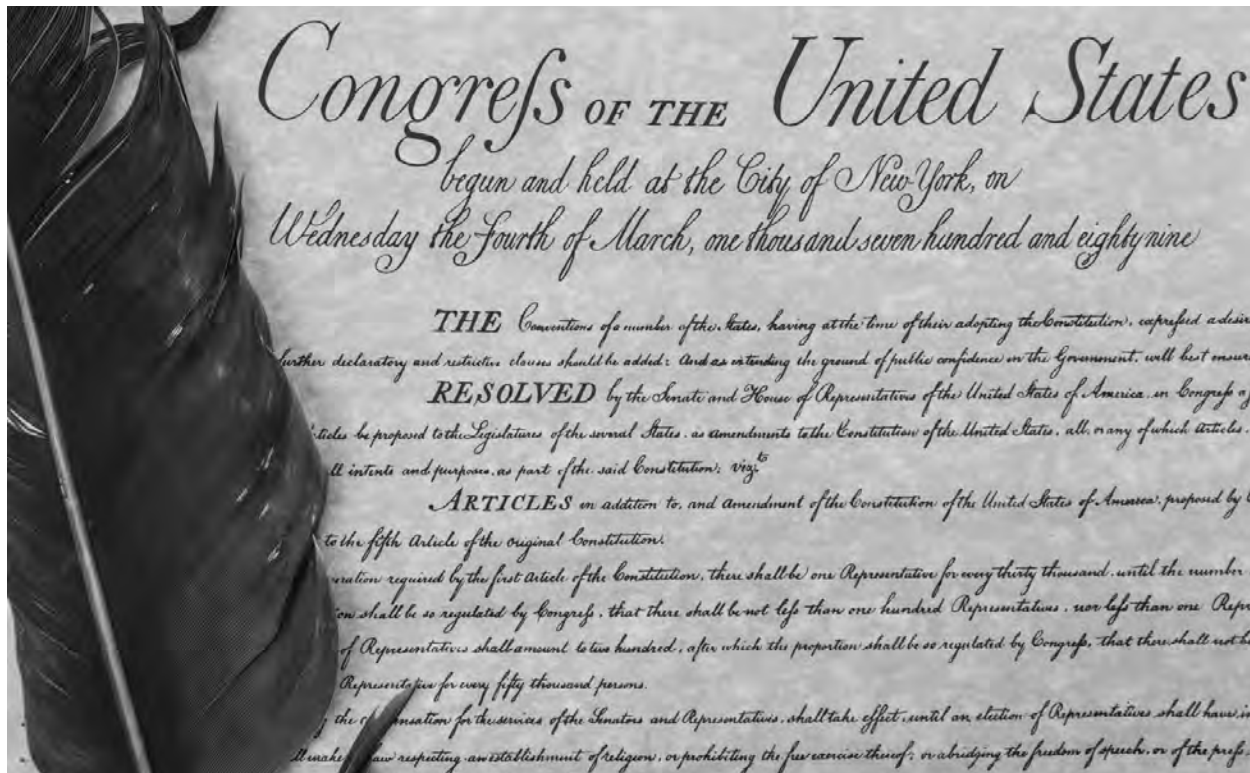 Congreſs OF THE United States
begun and held at the City of New-York, on
Wednesday the Fourth of March, one thousand seven hundred and eighty nine
THE Conventions of a number of the States, having at the time of their adopting the Constitution, expreſsed a desire
further declaratory and restrictive clauses should be added: And as extending the ground of public confidence in the Government, will best insure
RESOLVED by the Senate and House of Representatives of the United States of America, in Congreſs
Articles be proposed to the Legislatures of the several States, as amendments to the Constitution of the United States, all, or any of which Articles,
all intents and purposes, as part of the said Constitution; vizt
ARTICLES in addition to, and Amendment of the Constitution of the United States of America, proposed by
to the fifth Article of the original Constitution.
required by the first Article of the Constitution, there shall be one Representative for every thirty thousand, until the number
shall be so regulated by Congreſs, that there shall be not leſs than one hundred Representatives, nor leſs than one
of Representatives shall amount to two hundred, after which the proportion shall be so regulated by Congreſs, that there shall not be
Representative for every fifty thousand persons.
the for the services of the Senators and Representatives, shall take effect, until an election of Representatives shall have
make law respecting an establishment of religion, or prohibiting the free exercise thereof; or abridging the freedom of speech, or of the preſs,